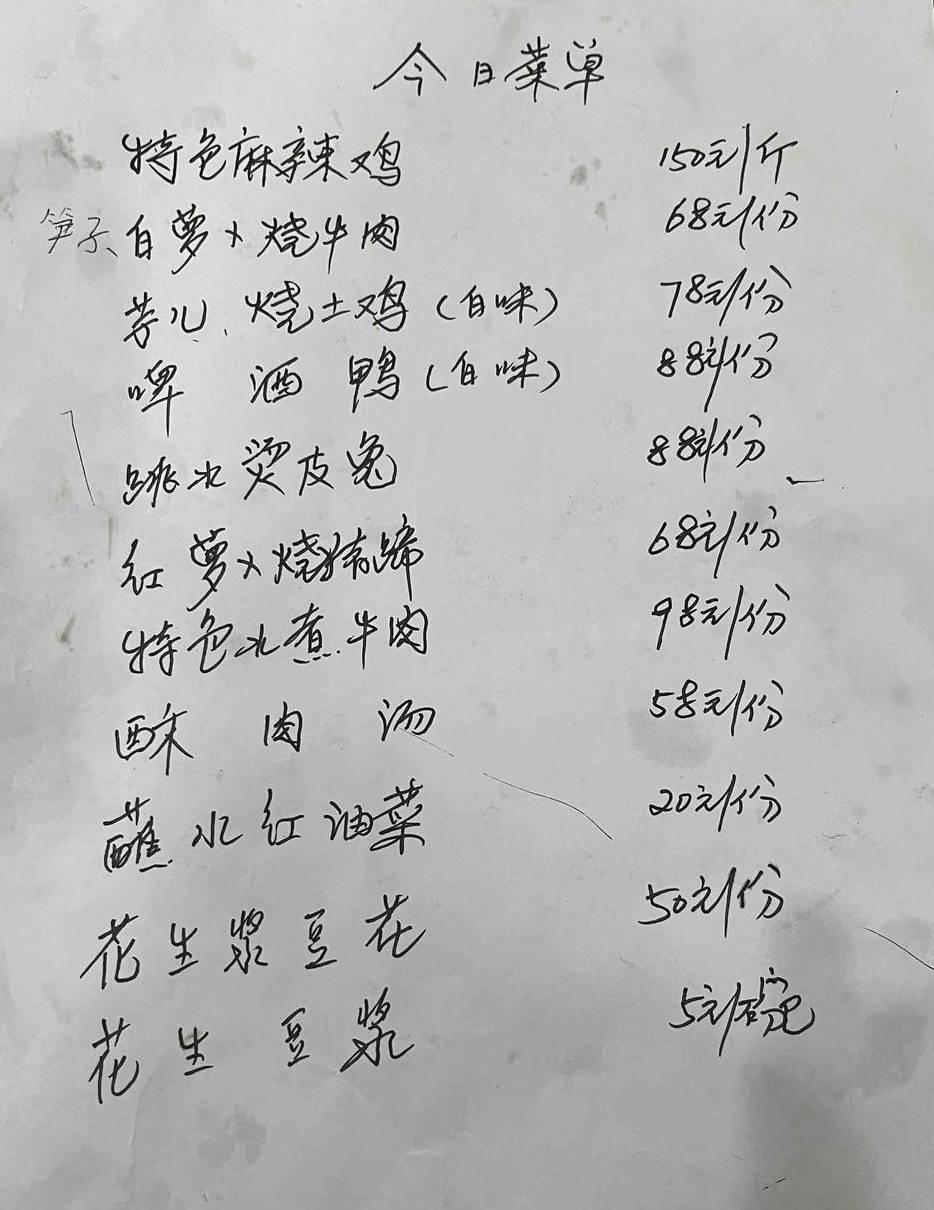 今日菜单
特色麻辣鸡 150元/斤
笋子、白萝卜烧牛肉 68元/份
芋儿、烧土鸡(白味) 78元/份
啤酒鸭(白味) 88元/份
跳水烫皮兔 88元/份
红萝卜烧猪蹄 68元/份
特色水煮牛肉 98元/份
酥肉汤 58元/份
蘸水红油菜 20元/份
花生浆豆花 50元/份
花生豆浆 5元/碗